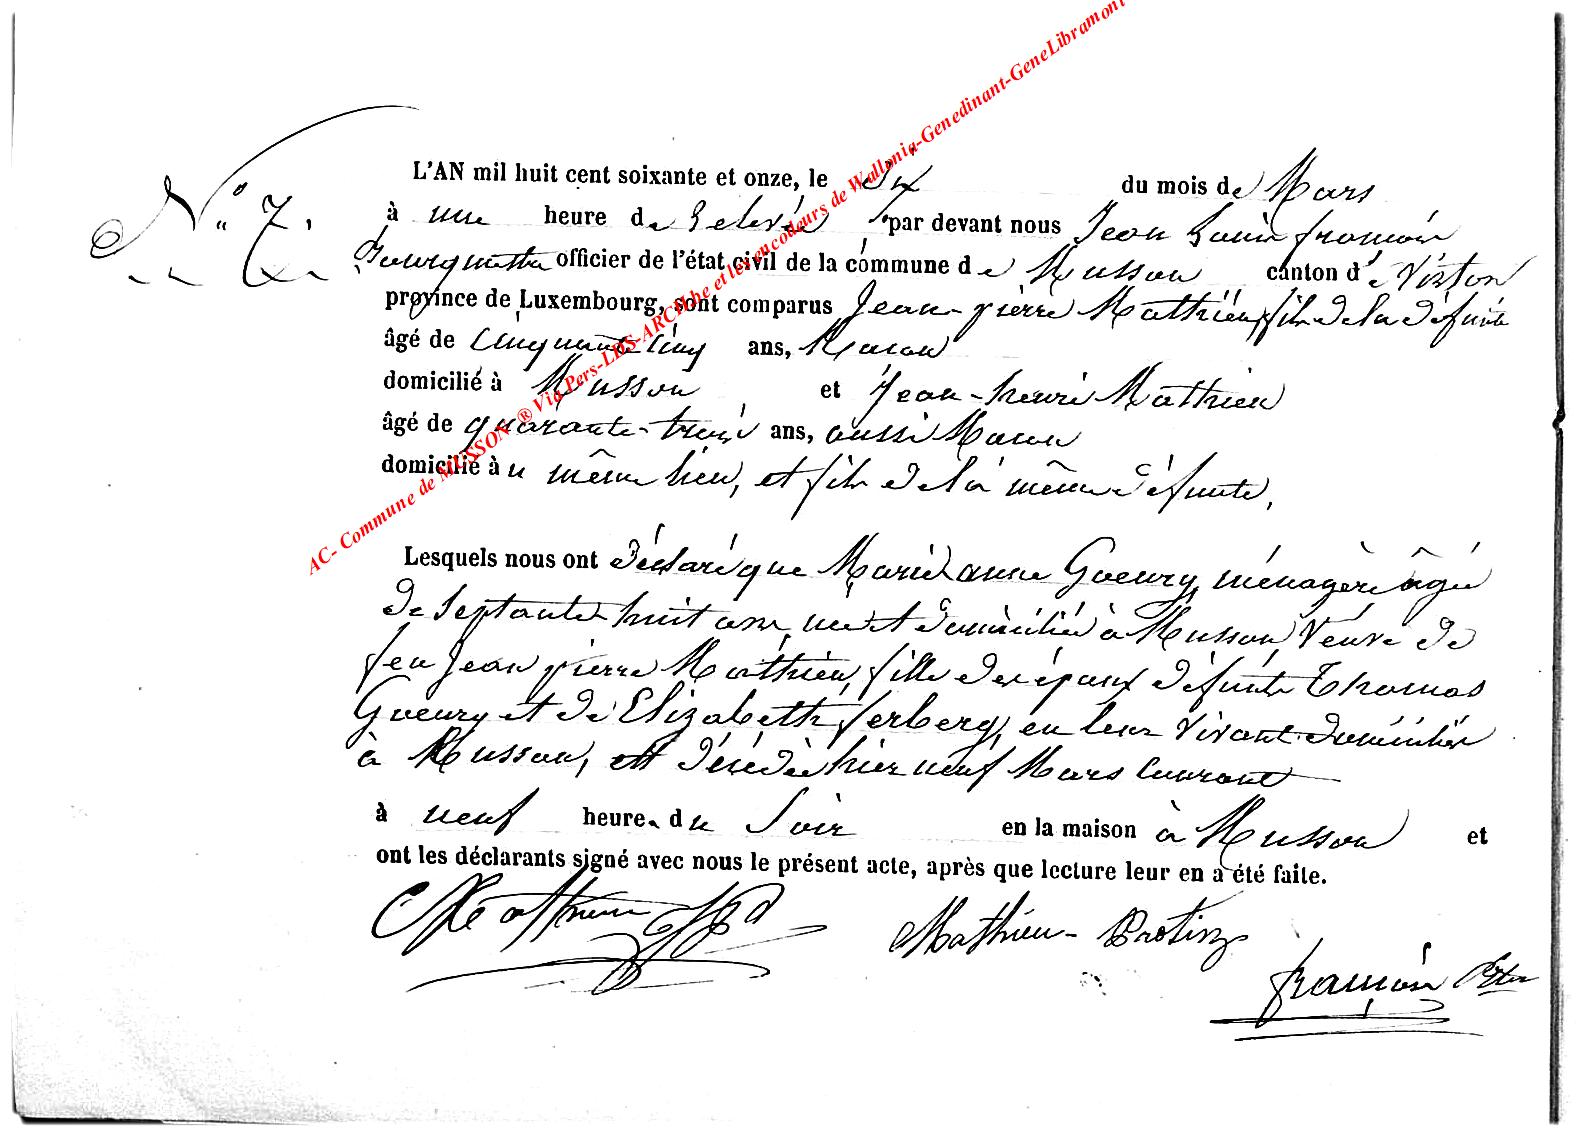 N° 7.
L'AN mil huit cent soixante et onze, le dix du mois de Mars
à une heure de relevé, par devant nous Jean Louis françois
Bourgmestre officier de l'état civil de la commune de Musson canton de Virton
province de Luxembourg, sont comparus Jean-pierre Mathieu, fils de la défunte
âgé de cinquante cinq ans, Maçon
domicilié à Musson et Jean-henri Mathieu
âgé de quarante-trois ans, aussi Maçon
domicilié au même lieu, et fils de la même défunte,
Lesquels nous ont déclaré que Marie anne Goeury, ménagère âgée
de septante-huit ans, née et domiciliée à Musson, Veuve de
feu Jean pierre Mathieu, fille des époux défunts Thomas
Goeury et de Elizabeth ferberg, en leur vivant domiciliés
à Musson, est décédée hier neuf Mars courant
à neuf heures du soir en la maison à Musson et
ont les déclarants signé avec nous le présent acte, après que lecture leur en a été faite.
Mathieu
Mathieu - Protin
françois
AC- Commune de MUSSON ® Via Pers-LDS-ARCHbe et les encodeurs de Wallonia-Genedinant-GeneLibramont